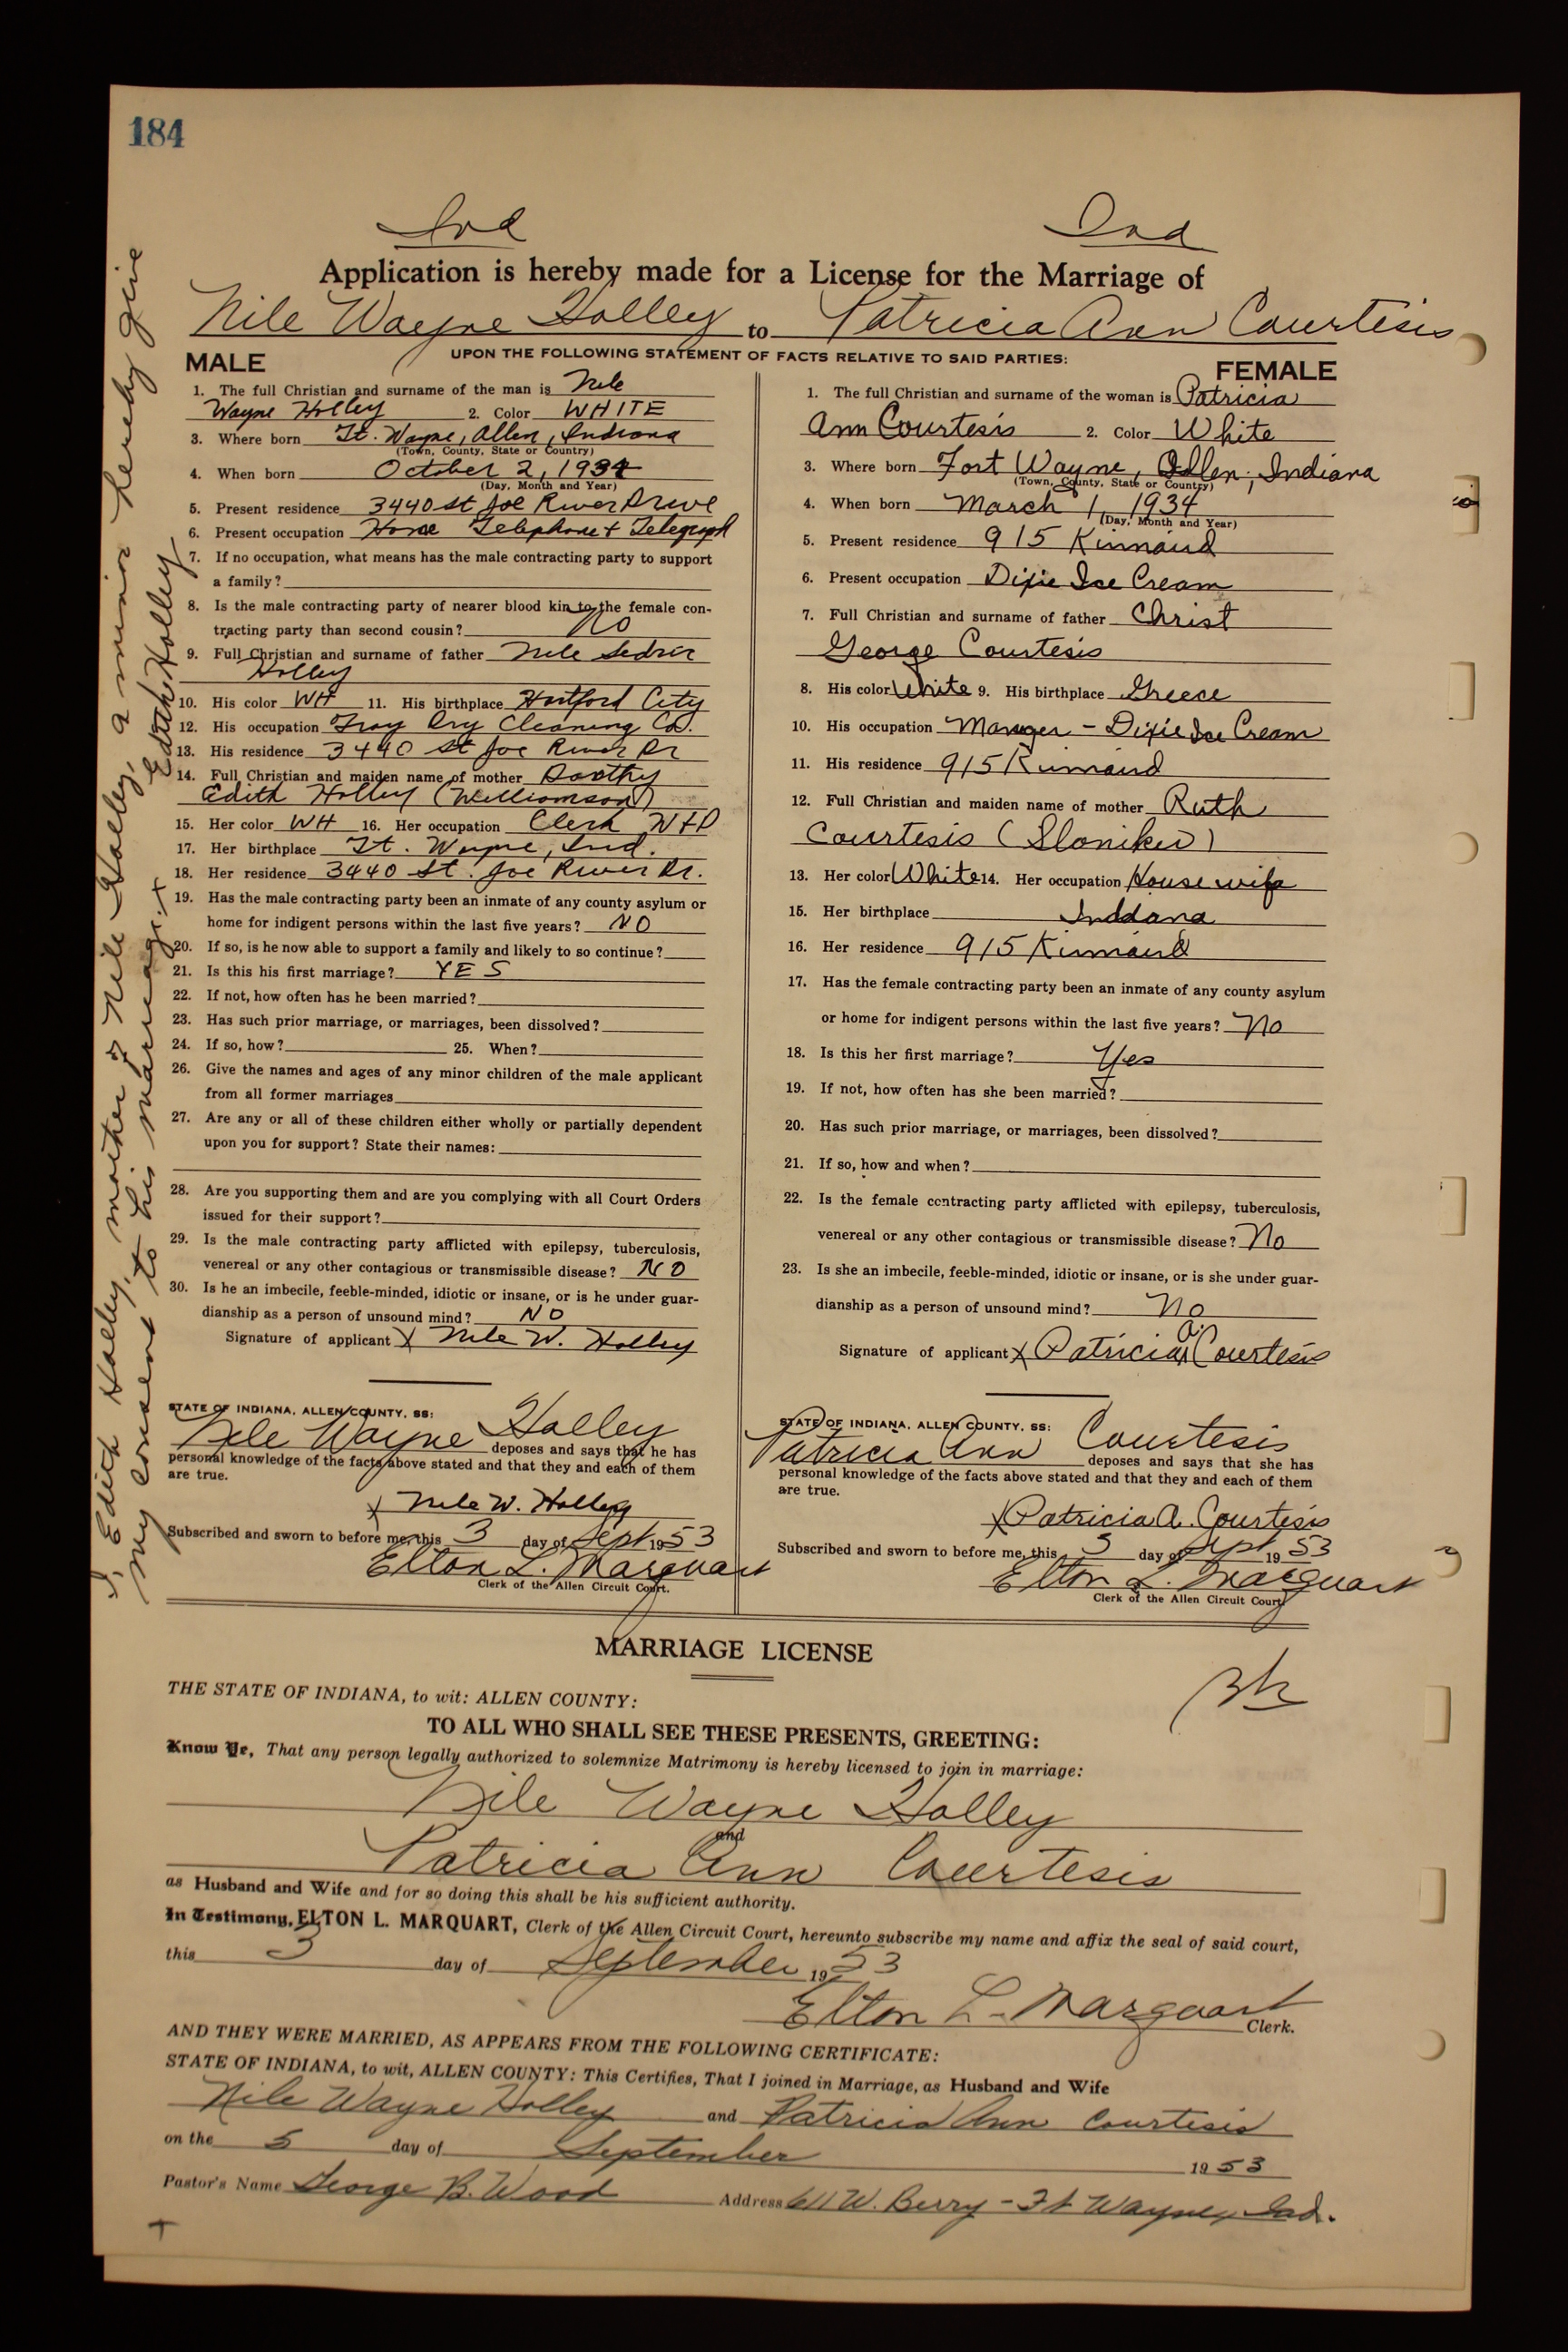 184
Ind Ind
Application is hereby made for a License for the Marriage of
Nile Wayne Holley to Patricia Ann Courtesis
UPON THE FOLLOWING STATEMENT OF FACTS RELATIVE TO SAID PARTIES:
MALE
1. The full Christian and surname of the man is Nile
Wayne Holley 2. Color WHITE
3. Where born Ft. Wayne, Allen, Indiana
(Town, County, State or Country)
4. When born October 2, 1934
(Day, Month and Year)
5. Present residence 3440 St Joe River Drive
6. Present occupation Home Telephone & Telegraph
7. If no occupation, what means has the male contracting party to support
a family?
8. Is the male contracting party of nearer blood kin to the female con-
tracting party than second cousin? No
9. Full Christian and surname of father Nile
Holley
10. His color WH 11. His birthplace Hartford City
12. His occupation Troy Dry Cleaning Co.
13. His residence 3440 St Joe River Dr
14. Full Christian and maiden name of mother Dorothy
Edith Holley (Williamson)
15. Her color WH 16. Her occupation Clerk
17. Her birthplace Ft. Wayne, Ind.
18. Her residence 3440 St. Joe River Dr.
19. Has the male contracting party been an inmate of any county asylum or
home for indigent persons within the last five years? NO
20. If so, is he now able to support a family and likely to so continue?
21. Is this his first marriage? YES
22. If not, how often has he been married?
23. Has such prior marriage, or marriages, been dissolved?
24. If so, how? 25. When?
26. Give the names and ages of any minor children of the male applicant
from all former marriages
27. Are any or all of these children either wholly or partially dependent
upon you for support? State their names:
28. Are you supporting them and are you complying with all Court Orders
issued for their support?
29. Is the male contracting party afflicted with epilepsy, tuberculosis,
venereal or any other contagious or transmissible disease? NO
30. Is he an imbecile, feeble-minded, idiotic or insane, or is he under guar-
dianship as a person of unsound mind? NO
Signature of applicant X Nile W. Holley
STATE OF INDIANA, ALLEN COUNTY, SS:
Nile Wayne Holley deposes and says that he has
personal knowledge of the facts above stated and that they and each of them
are true.
X Nile W. Holley
Subscribed and sworn to before me, this 3 day of Sept 1953
Elton L. Marquart
Clerk of the Allen Circuit Court.
FEMALE
1. The full Christian and surname of the woman is Patricia
Ann Courtesis 2. Color White
3. Where born Fort Wayne, Allen, Indiana
(Town, County, State or Country)
4. When born March 1, 1934
(Day, Month and Year)
5. Present residence 915 Kinnaird
6. Present occupation Dixie Ice Cream
7. Full Christian and surname of father Christ
George Courtesis
8. His color White 9. His birthplace Greece
10. His occupation Manager - Dixie Ice Cream
11. His residence 915 Kinnaird
12. Full Christian and maiden name of mother Ruth
Courtesis (Sloniker)
13. Her color White 14. Her occupation Housewife
15. Her birthplace Inddana
16. Her residence 915 Kinnaird
17. Has the female contracting party been an inmate of any county asylum
or home for indigent persons within the last five years? No
18. Is this her first marriage? Yes
19. If not, how often has she been married?
20. Has such prior marriage, or marriages, been dissolved?
21. If so, how and when?
22. Is the female contracting party afflicted with epilepsy, tuberculosis,
venereal or any other contagious or transmissible disease? No
23. Is she an imbecile, feeble-minded, idiotic or insane, or is she under guar-
dianship as a person of unsound mind? No
Signature of applicant X Patricia A. Courtesis
STATE OF INDIANA, ALLEN COUNTY, SS:
Patricia Ann Courtesis deposes and says that she has
personal knowledge of the facts above stated and that they and each of them
are true.
X Patricia A. Courtesis
Subscribed and sworn to before me, this 3 day of Sept 1953
Elton L. Marquart
Clerk of the Allen Circuit Court
I, Edith Holley, mother of Nile Holley, a minor hereby give
my consent to his marriage. X Edith Holley
MARRIAGE LICENSE
THE STATE OF INDIANA, to wit: ALLEN COUNTY:
TO ALL WHO SHALL SEE THESE PRESENTS, GREETING:
Know Ye, That any person legally authorized to solemnize Matrimony is hereby licensed to join in marriage:
Nile Wayne Holley
and
Patricia Ann Courtesis
as Husband and Wife and for so doing this shall be his sufficient authority.
In Testimony, ELTON L. MARQUART, Clerk of the Allen Circuit Court, hereunto subscribe my name and affix the seal of said court,
this 3 day of September 1953
Elton L. Marquart
Clerk.
AND THEY WERE MARRIED, AS APPEARS FROM THE FOLLOWING CERTIFICATE:
STATE OF INDIANA, to wit, ALLEN COUNTY: This Certifies, That I joined in Marriage, as Husband and Wife
Nile Wayne Holley and Patricia Ann Courtesis
on the 5 day of September 1953
Pastor's Name George B. Wood Address 611 W. Berry - Ft Wayne, Ind.